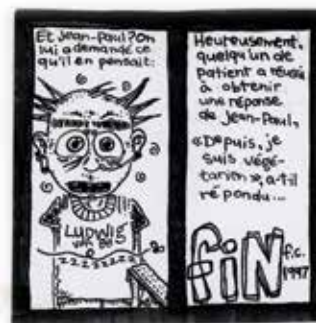 Et Jean-Paul? On
lui a demandé ce
qu'il en pensait:
LUDWIG
VAN BE
ZZZZZZZZ
Heureusement,
quelqu'un de
patient a réussi
à obtenir
une réponse
de Jean-Paul,
«Depuis, je
suis végé-
tarien», a-t-il
répondu...
FIN
f.c.
1997